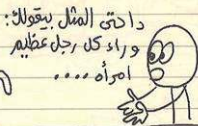 داحتى المثل بيقولك:
وراء كل رجل عظيم
امرأة ....